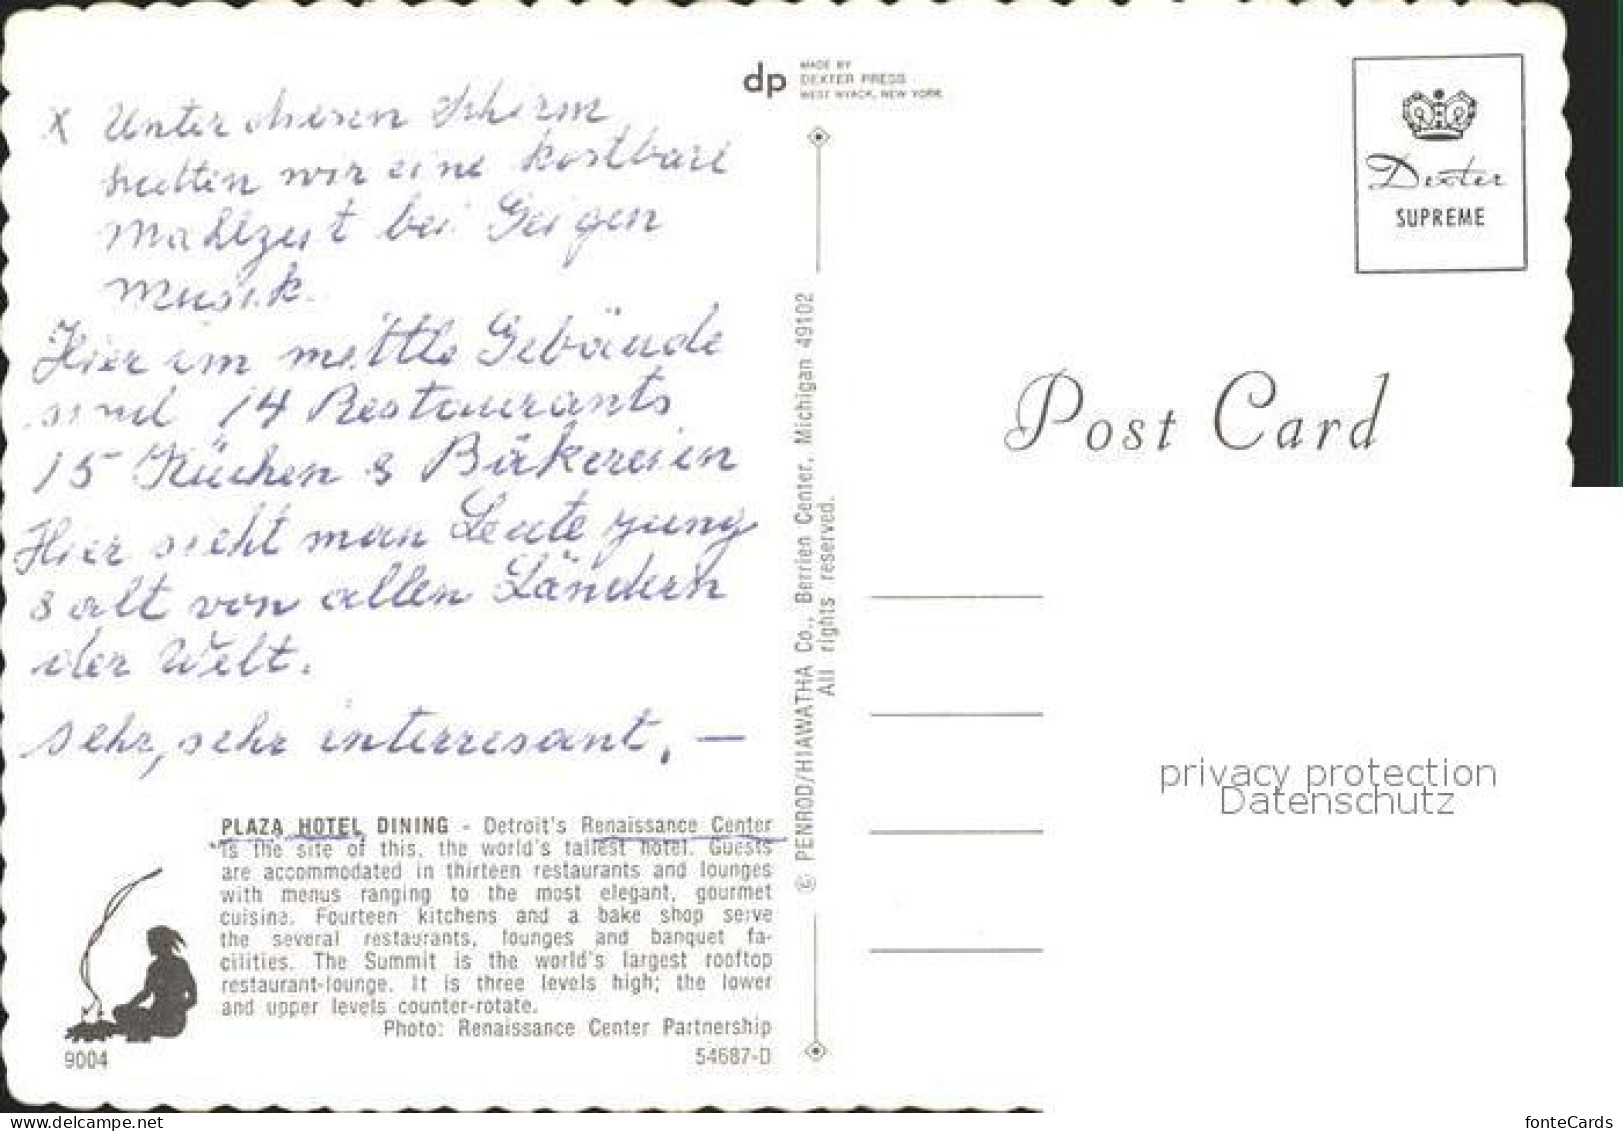 x Unter diesen Schirm
hatten wir eine kostbare
Mahlzeit bei Geigen
musik.
Hier im mittle Gebäude
sind 14 Restaurants
15 Küchen & Bäkereien
Hier sieht man Leute yung
& alt von allen Ländern
der Welt.
sehr, sehr interresant. —
PLAZA HOTEL DINING - Detroit's Renaissance Center
is the site of this, the world's tallest hotel. Guests
are accommodated in thirteen restaurants and lounges
with menus ranging to the most elegant, gourmet
cuisine. Fourteen kitchens and a bake shop serve
the several restaurants, lounges and banquet fa-
cilities. The Summit is the world's largest rooftop
restaurant-lounge. It is three levels high; the lower
and upper levels counter-rotate.
Photo: Renaissance Center Partnership
9004
54687-D
dp
MADE BY
DEXTER PRESS
WEST NYACK, NEW YORK
© PENROD/HIAWATHA Co., Berrien Center, Michigan 49102
All rights reserved.
Dexter
SUPREME
Post Card
privacy protection
Datenschutz
www.delcampe.net
fonteCards